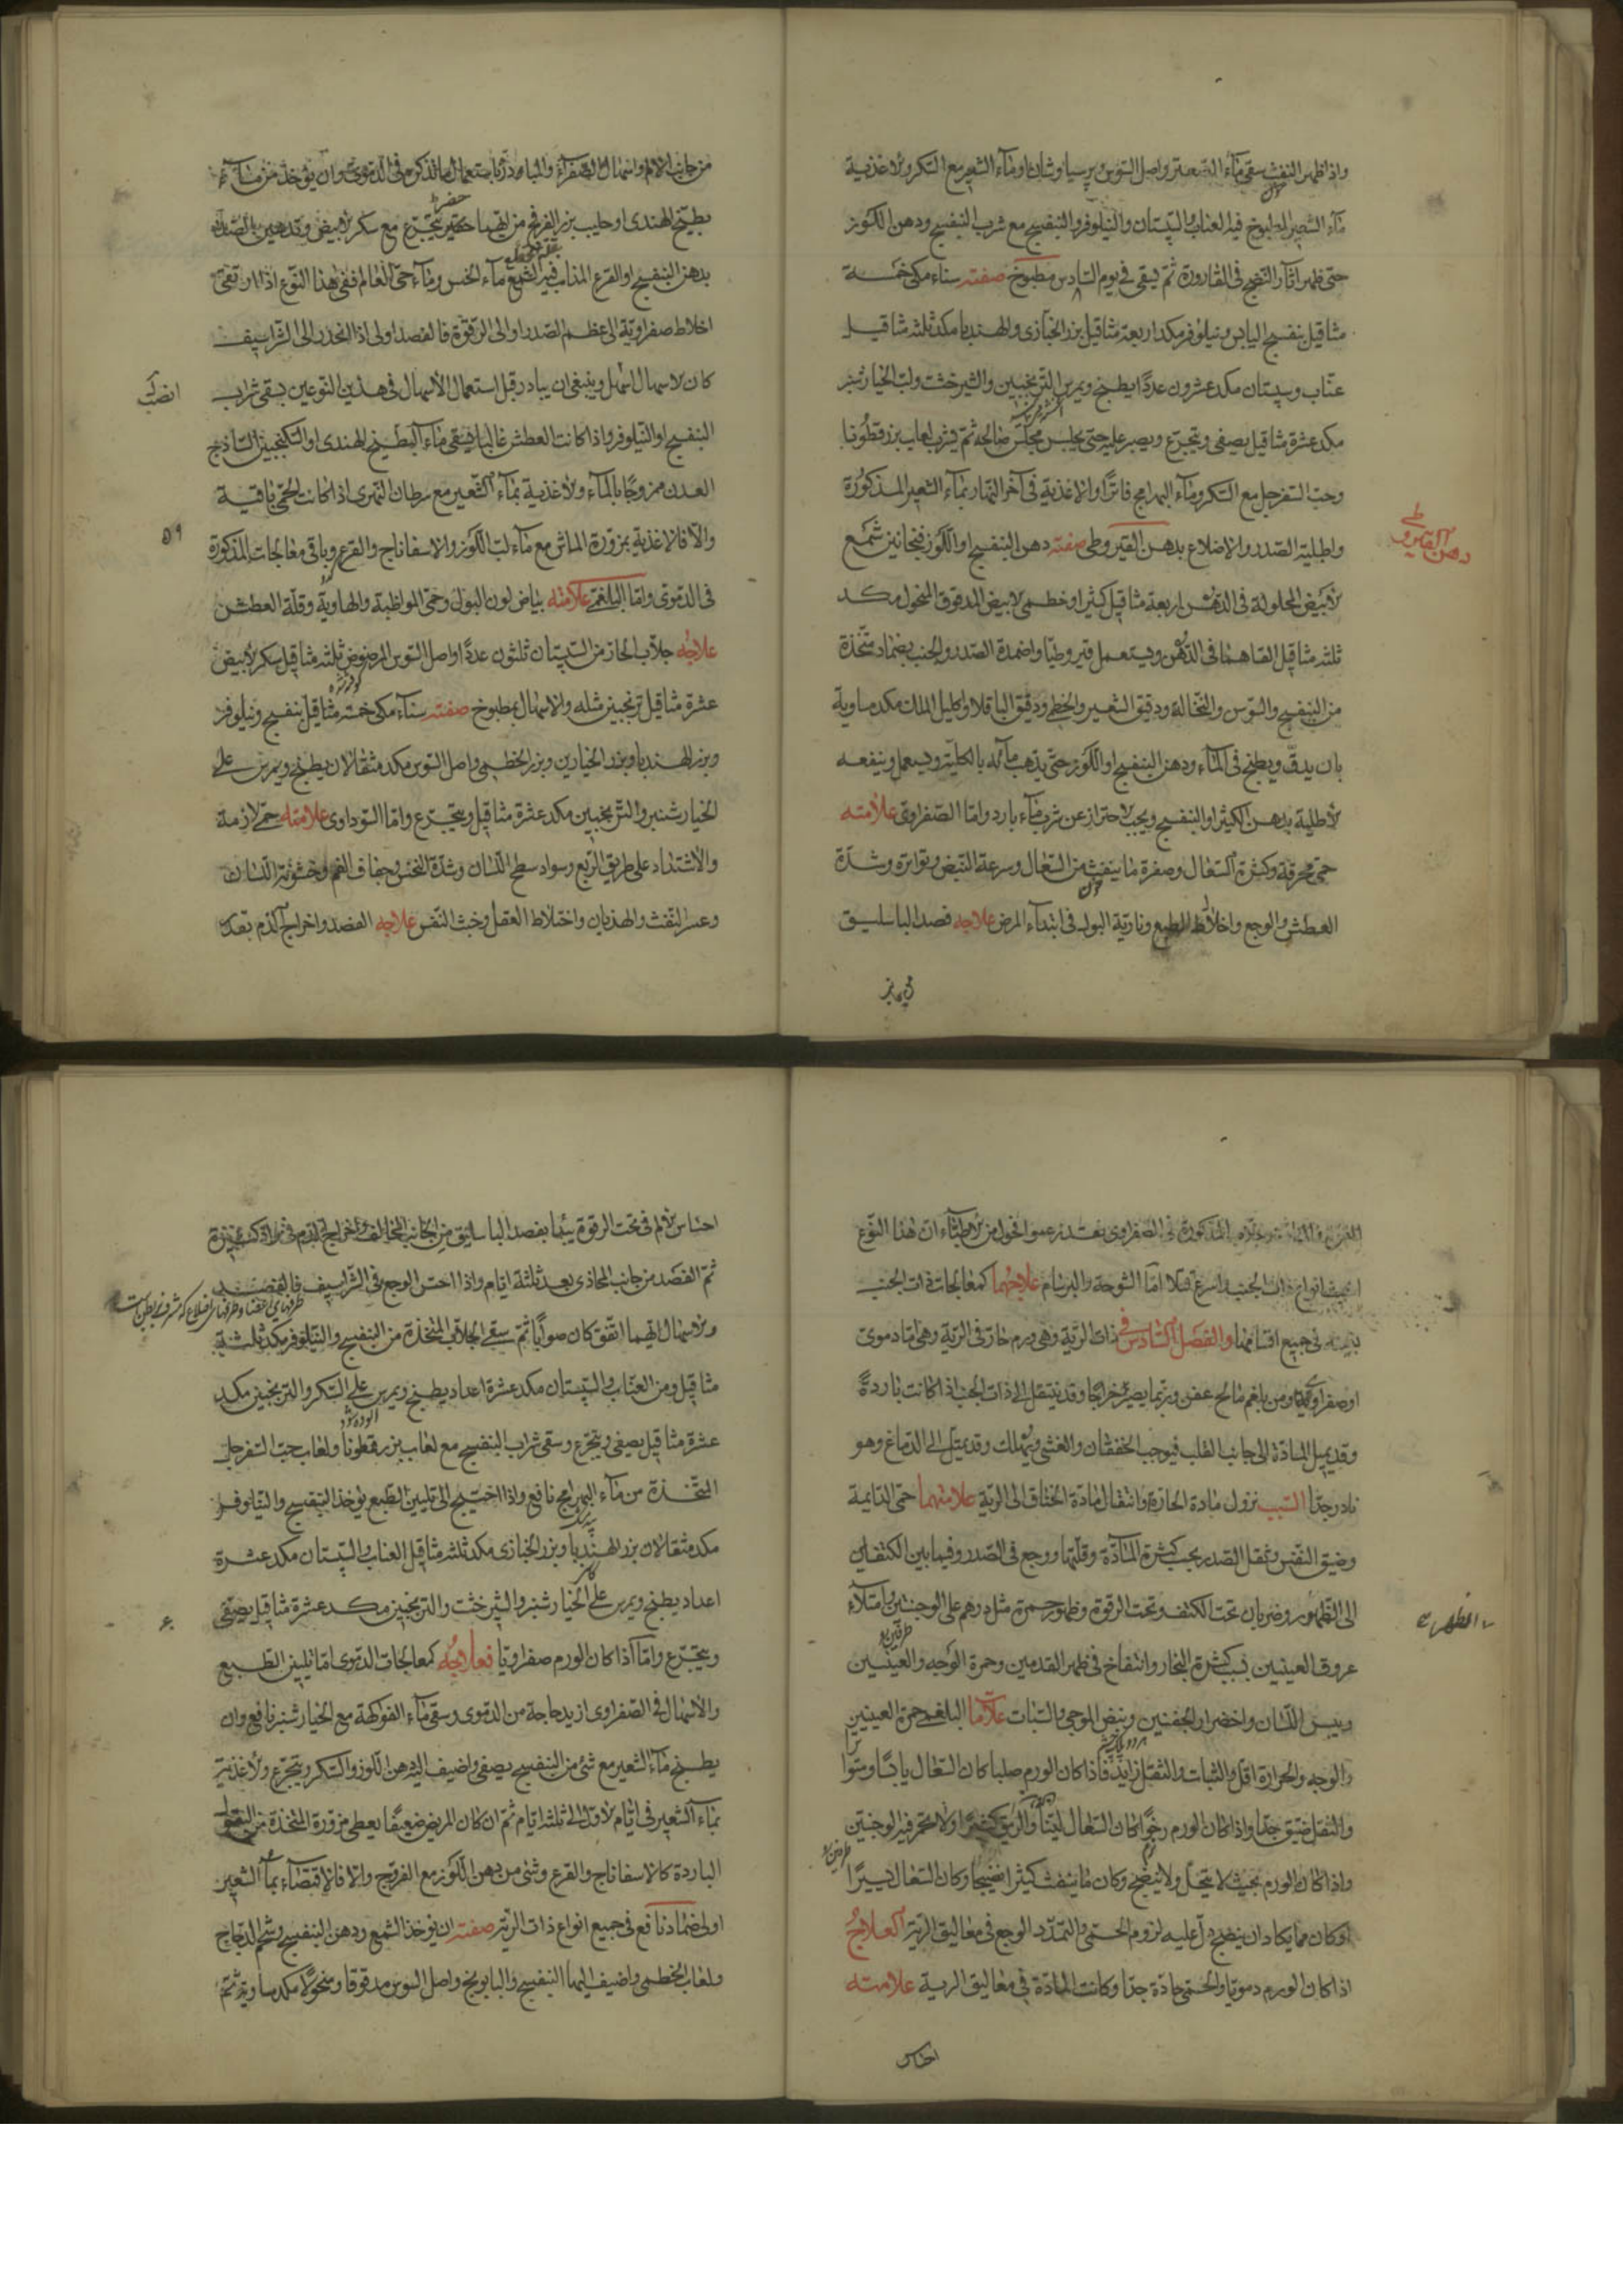 واذا ظهر النفث سقى ماء واصل السوس برسياوشان او ماء الشعير مع السكر والاغذية
ماء الشعير المطبوخ فيه العناب والسپستان والنيلوفر والبنفسج مع شرب البنفسج ودهن اللوز
حتى ظهر آثار النضج فى القارورة ثم يسقى فى يوم السادس مطبوخ صفته سناء مكى خمسة
مثاقيل بنفسج اليابس ونيلوفر مكد اربعة مثاقيل بزر الخبازى والهندبا مكد ثلثه مثاقيل
عناب وسپستان مكد عشرون عددًا يطبخ ويمرس الترنجبين والشيرخشت ولب الخيارشنبر
مكد عشرة مثاقيل يصفى ويتجرع ويصبر عليه حتى يجلس مجلس صالحه ثم يشرب لعاب بزر قطونا
وحب السفرجل مع السكر وماء البهرامج فاترًا والاغذية فى آخر النهار بماء الشعير المذكورة
واطلية الصدر والاضلاع بدهن القيروطى صفته دهن البنفسج او اللوز فنجانين شمع
الابيض المحلولة فى الدهن اربعة مثاقيل كثيرا وخطمى الابيض المدقوق المنخول مكد
ثلثه مثاقيل القاهما فى الدهن ويستعمل قيروطيا واضمدة الصدر والجنب بضماد متخذة
من البنفسج والسوس والنخالة ودقيق الشعير والخطمى ودقيق الباقلا واكليل الملك مكد مساوية
بان يدق ويطبخ فى الماء ودهن البنفسج او اللوز حتى يذهب مائه بالكلية ويستعمل وينفعه
الاطلية بدهن الكثيرا والبنفسج ويجب الاحتراز عن شرب ماء بارد واما الصفراوى علامته
حمى محرقة وكثرة السعال وصفرة ما ينفث من السعال وسرعة النبض وتواتره وشدة
العطش والوجع واختلاط الطبع ونارية البول فى ابتداء المرض علاجه فصد الباسليق
دهن القيروطى
من جانب الالم واسهال الصفراء والمبادرة باستعمال ما نذكره فى الدموى وان يؤخذ من ماء
بطيخ الهندى او حليب بزر الفرفخ من ايهما حضر يتجرع مع سكر الابيض وتدهين الصدر
بدهن البنفسج او القرع المذاب فيه الشمع ماء الخس وماء حى العالم ففى هذا النوع اذا ارتقى
اخلاط صفراوية الى عظم الصدر او الى الترقوة فالفصد اولى اذا انحدر الى الشراسيف
كان الاسهال اسهل وينبغى ان يبادر قبل استعمال الاسهال فى هذين النوعين بسقى شراب
البنفسج او النيلوفر واذا كانت العطش غالبا فيسقى ماء البطيخ الهندى او السكنجبين الساذج
العدن ممزوجًا بالماء والاغذية بماء الشعير مع سرطان النهرى اذا كانت الحمى باقية
والا فالاغذية بمزورة الماش مع ماء لب اللوز والاسفاناج والقرع وباقى معالجات المذكورة
فى الدموى واما البلغمى علامته بياض لون البول وحمى المواظبة والهاوية وقلة العطش
علاجه جلاب الحار من السپستان ثلثون عددًا واصل السوس المرضوض ثلثه مثاقيل سكر الابيض
عشرة مثاقيل ترنجبين مثله والاسهال بمطبوخ صفته سناء مكى خمسه مثاقيل بنفسج ونيلوفر
وبزر الهندبا وبزر الخيارين وبزر الخطمى واصل السوس مكد مثقالان يطبخ ويمرس على
الخيارشنبر والترنجبين مكد عشرة مثاقيل ويتجرع واما السوداوى علامته حمى لازمة
والاشتداد على طريق الربع وسواد سطح اللسان وشدة النخس وجفاف الفم وخشونة اللسان
وعسر النفث والهذيان واختلاط العقل وخبث النفس علاجه الفصد واخراج الدم بقدر
۵۹
المذكورة فى الصفراوى بعد زعموا فحول من الاطباء ان هذا النوع
انواع ذات الجنب واسرع قتلا اما الشوصة والبرسام علاجهما كمعالجات ذات الجنب
فى جميع اقسامها والفصل السادس فى ذات الرية وهى ورم حار فى الرية وهى اما دموى
او صفراوى او من بلغم مالح عفن وربما يصير خراجا وقد ينتقل الى ذات الجنب اذا كانت باردة
وقد يميل المادة الى جانب القلب فيوجب الخفقان والغشى ويهلك وقد يميل الى الدماغ وهو
نادر جدا السبب نزول مادة الحارة وانتقال مادة الخناق الى الرية علامتهما حمى الدايمة
وضيق النفس وثقل الصدر بحسب كثرة المادة وقلتها ووجع فى الصدر وفيما بين الكتفين
الى الظهر وضربان تحت الكتف وتحت الترقوة وظهور حمرة مثل درهم على الوجنتين وامتلاء
عروق العينين بسبب كثرة البخار وانتفاخ فى ظهر القدمين وحمرة الوجه والعينين
ويبس اللسان واخضرار الجفنين ونبض الموجى والسبات علامة البلغمى حمرة العينين
والوجه والحرارة اقل والثبات والثقل زايد فاذا كان الورم صلبا كان السعال يابسًا ومتوا
والثقل ضيق جدا واذا كان الورم رخوًا كان السعال لينا والريق كثيرًا ولا تحمر فيه الوجنتين
واذا كان الورم بحيث لا يتحلل ولا ينضج وكان ما ينفث كثيرا نضيجا وكان السعال يسيرًا
او كان مما يكاد ان ينضج دل عليه لزوم الحمى والتمدد الوجع فى معاليق الرية العلاج
اذا كان الورم دمويا والحمى حادة جدا وكانت المادة فى معاليق الرية علامته
احساس
احساس الالم فى تحت الترقوة يبدأ بفصد الباسليق من الجانب المخالف واخراج الدم
ثم الفصد من جانب المحاذى بعد ثلثة ايام واذا احس الوجع فى الشراسيف فالفصد
والاسهال ايهما اتفق كان صوابًا ثم سقى الجلاب المتخذة من البنفسج والنيلوفر مكد ثلثة
مثاقيل ومن العناب والسپستان مكد عشرة اعداد يطبخ ويمرس على السكر والترنجبين مكد
عشرة مثاقيل يصفى ويتجرع وسقى شراب البنفسج مع لعاب بزر قطونا ولعاب حب السفرجل
المتخذة من ماء البهرامج نافع واذا احتيج الى تليين الطبع يؤخذ البنفسج والنيلوفر
مكد مثقالان بزر الهندبا وبزر الخبازى مكد ثلثه مثاقيل العناب والسپستان مكد عشرة
اعداد يطبخ ويمرس على الخيارشنبر والشيرخشت والترنجبين مكد عشرة مثاقيل يصفى
ويتجرع واما اذا كان الورم صفراويا فعلاجه كمعالجات الدموى اما تليين الطبع
والاسهال فى الصفراوى ازيد حاجة من الدموى وسقى ماء الفواكهة مع الخيارشنبر نافع وان
يطبخ ماء الشعير مع شئ من البنفسج يصفى واضيف اليه دهن اللوز والسكر ويتجرع والاغذية
بماء الشعير فى ايام الاول الى ثلثه ايام ثم ان كان المريض ضعيفًا يعطى مزورة المتخذة من البقول
الباردة كالاسفاناج والقرع وشئ من دهن اللوز مع الفروج والا فالاقتصار بماء الشعير
اولى ضماد نافع فى جميع انواع ذات الرية صفته ان يؤخذ الشمع ودهن البنفسج وشحم الدجاج
ولعاب الخطمى واضيف اليهما البنفسج والبابونج واصل السوس مدقوقا ومنخولًا مكد مساوية ثم